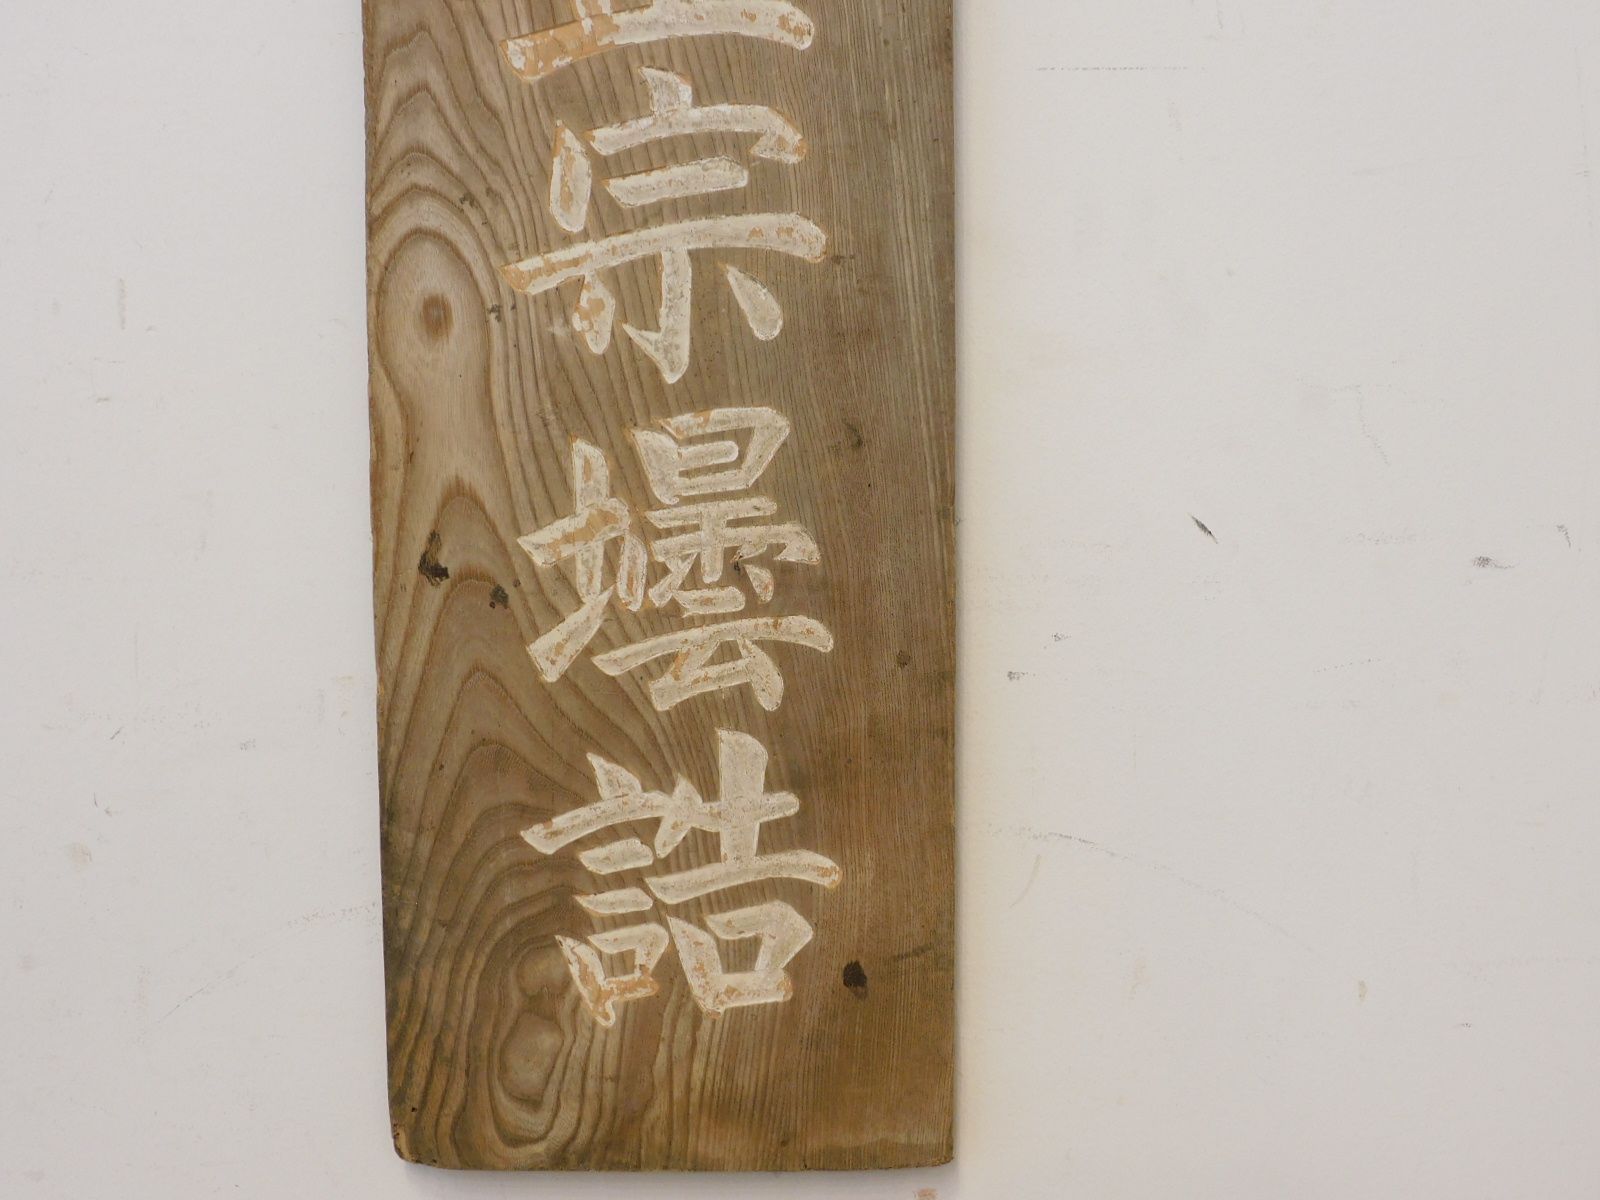 宗壜詰